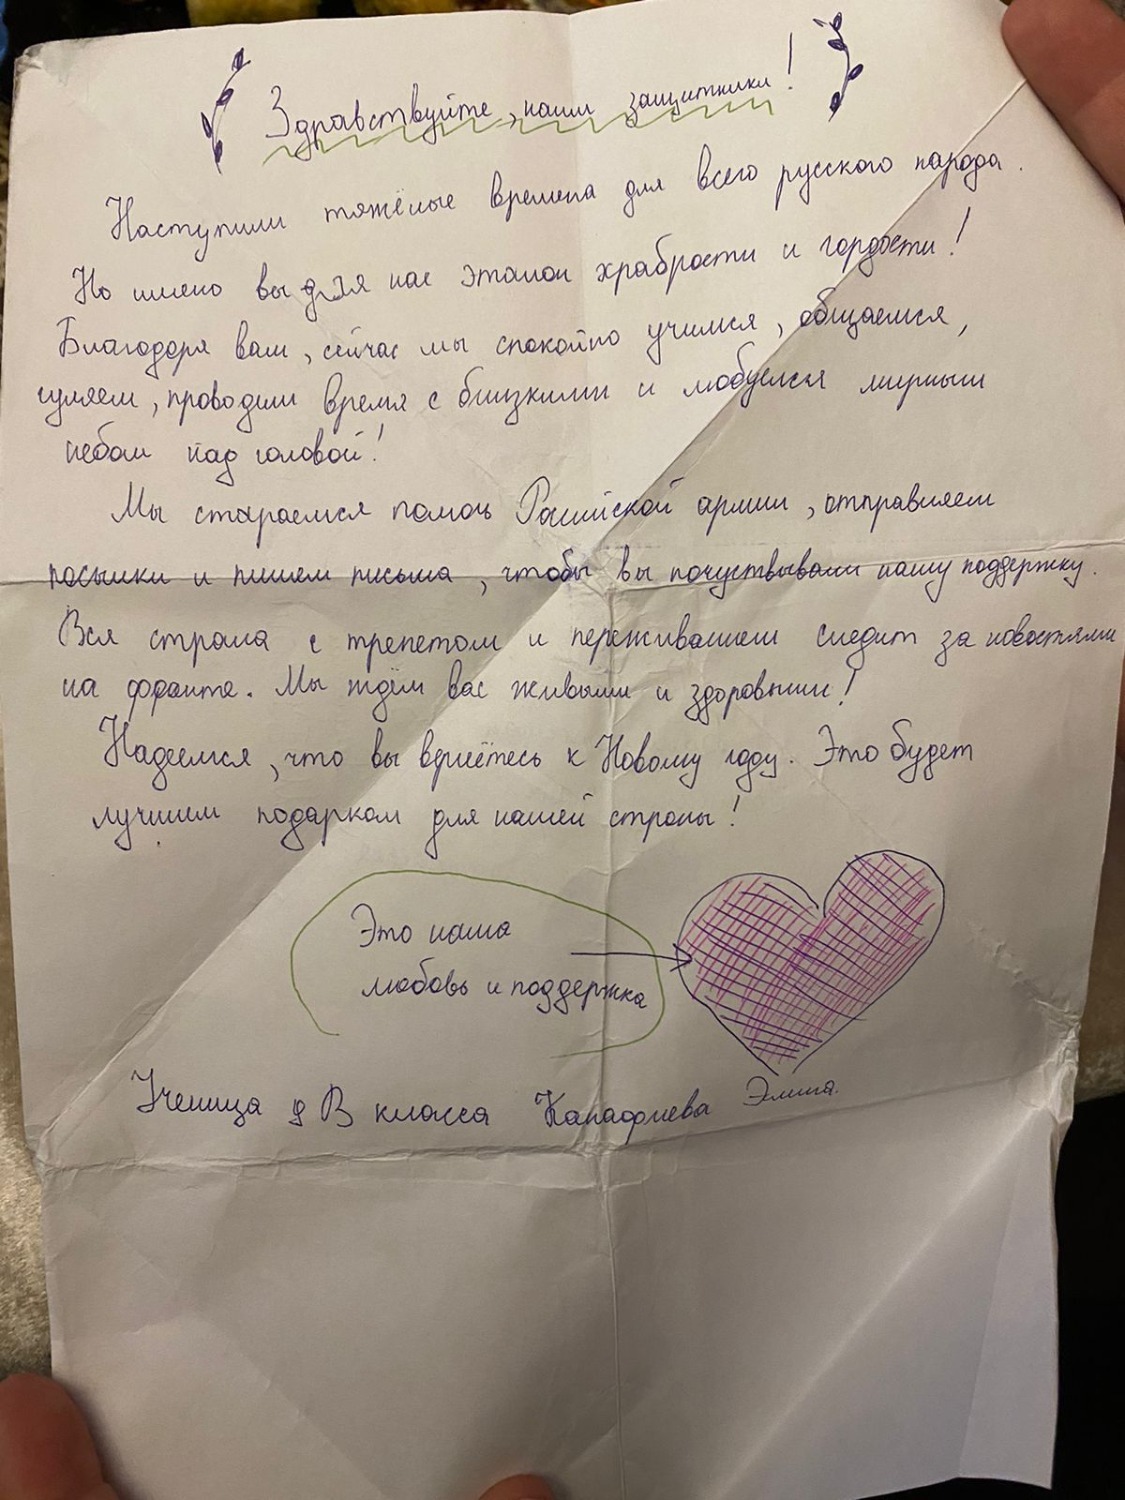 Здравствуйте, наши защитники!
Наступили тяжёлые времена для всего русского народа.
Но имено вы для нас эталон храбрости и гордости!
Благодоря вам, сейчас мы спокойно учимся, общаемся,
гуляем, проводим время с близкими и любуемся мирным
небом над головой!
Мы стараемся помочь Российской армии, отправляем
посылки и пишем письма, чтобы вы почуствывали нашу поддержку.
Вся страна с трепетом и переживанием следит за новостями
на фронте. Мы ждём вас живыми и здоровыми!
Надеемся, что вы вернётесь к Новому году. Это будет
лучшим подарком для нашей страны!
Это наша
любовь и поддержка
Ученица В класса Элина.